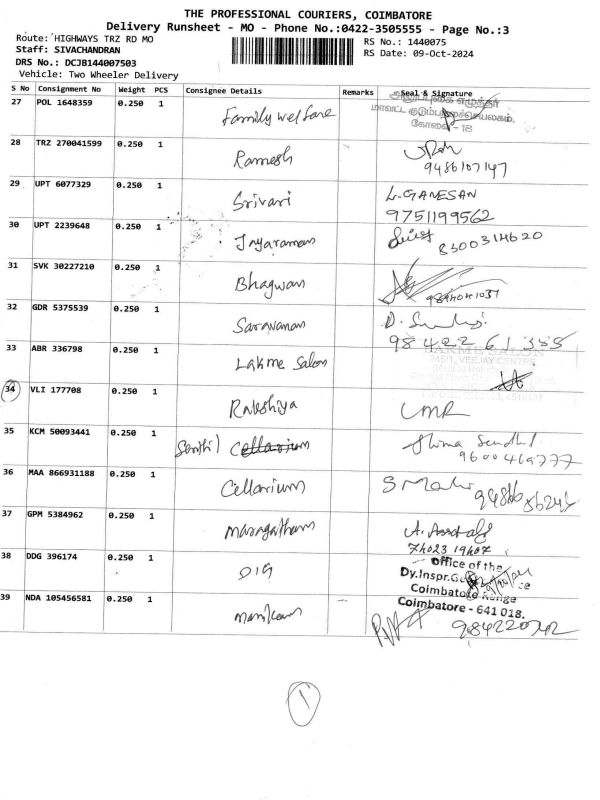 THE PROFESSIONAL COURIERS, COIMBATORE
Delivery Runsheet - MO - Phone No.:0422-3505555 - Page No.:3
Route: HIGHWAYS TRZ RD MO
RS No.: 1440075
Staff: SIVACHANDRAN
RS Date: 09-Oct-2024
DRS No.: DCJB144007503
Vehicle: Two Wheeler Delivery
S No Consignment No Weight PCS Consignee Details Remarks Seal & Signature
27 POL 1648359 0.250 1 Family welfare
கோவை - 18
28 TRZ 270041599 0.250 1 Ramesh
9486107147
29 UPT 6077329 0.250 1 Srivari L. GANESAN
9751199562
30 UPT 2239648 0.250 1 Jayaraman
8300314620
31 SVK 30227210 0.250 1 Bhagwan
32 GDR 5375539 0.250 1 Saravanan
98422 61355
33 ABR 336798 0.250 1 Lakme Salon
34 VLI 177708 0.250 1 Rakshiya
35 KCM 50093441 0.250 1 Senthil
9600469777
36 MAA 866931188 0.250 1 Cellarium
37 GPM 5384962 0.250 1 Maragatham
74023 19407
38 DDG 396174 0.250 1 DIG Office of the
Coimbatore Range
Coimbatore - 641 018.
39 NDA 105456581 0.250 1 Manikam
984220742
1